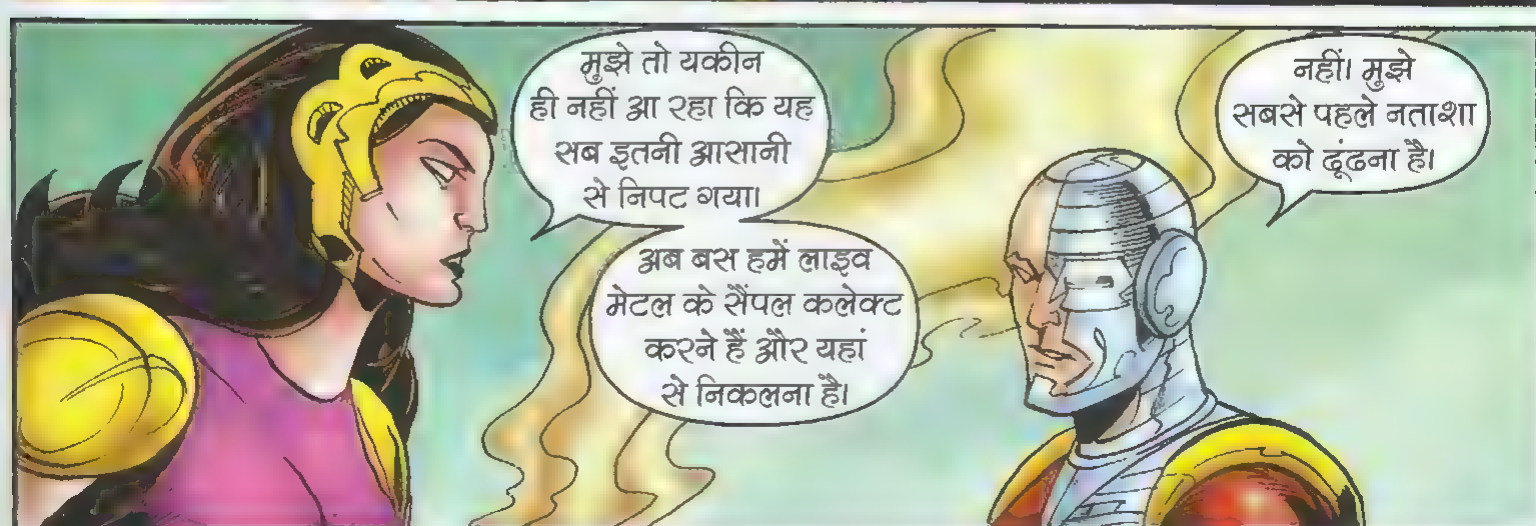 मुझे तो यकीन
ही नहीं आ रहा कि यह
सब इतनी आसानी
से निपट गया।
अब बस हमें लाइव
मेटल के सैंपल कलेक्ट
करने हैं और यहां
से निकलना है।
नहीं। मुझे
सबसे पहले नताशा
को ढूंढना है।